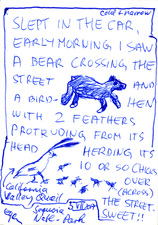 SLEPT IN THE CAR,
EARLY MORNING I SAW
A BEAR CROSSING THE
STREET AND
A BIRD- HEN
WITH 2 FEATHERS
PROTRUDING FROM ITS
HEAD HERDING ITS
10 OR SO CHICKS
OVER
(ACROSS)
THE STREET.
SWEET!!
California
Valley Quail
Sequoia
Nat. Park